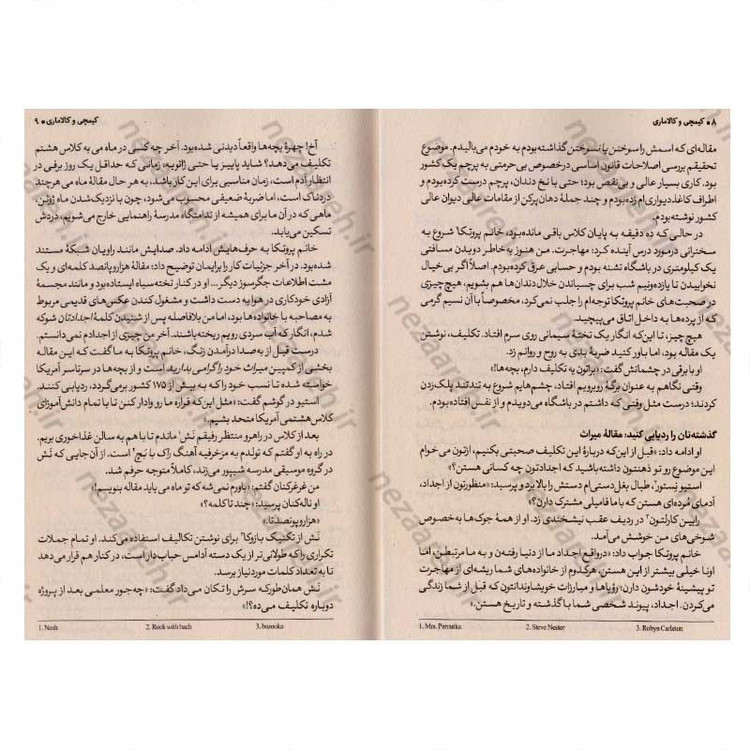 ۸ • کیمچی و کالاماری
مقاله‌ای که اسمش را سوختن یا نسوختن گذاشته‌بودم به خودم می‌بالیدم. موضوع
تحقیقم بررسی اصلاحات قانون اساسی درخصوص بی‌حرمتی به پرچم یک کشور
بود. کاری بسیار عالی و بی‌نقص بود؛ حتی با نخ دندان، پرچم درست کرده‌بودم و
اطراف کاغذ دیواری‌ام زده‌بودم و چند جملهٔ دهان‌پرکن از مقامات عالی دیوان عالی
کشور نوشته‌بودم.
در حالی که ده دقیقه به پایان کلاس باقی مانده‌بود، خانم پروتکا شروع به
سخنرانی درمورد درس آینده کرد: مهاجرت. من هنوز به خاطر دویدن مسافتی
یک کیلومتری در باشگاه تشنه بودم و حسابی عرق کرده‌بودم. اصلاً اگر بی‌خیال
نخوابیدن تا یازده‌ونیم شب برای چسباندن خلال‌دندان‌ها هم بشویم، هیچ‌چیزی
در صحبت‌های خانم پروتکا توجه‌ام را جلب نمی‌کرد، مخصوصاً با آن نسیم گرمی
که از پرده‌ها به داخل اتاق می‌پیچید.
هیچ‌چیز، تا این‌که انگار یک تختهٔ سیمانی روی سرم افتاد. تکلیف، نوشتن
یک مقاله بود، اما باور کنید ضربهٔ بدی به روح و روانم زد.
او با برقی در چشمانش گفت: «براتون یه تکلیف دارم، بچه‌ها!»
وقتی نگاهم به عنوان برگهٔ روبرویم افتاد، چشم‌هایم شروع به تندتند پلک‌زدن
کردند؛ درست مثل وقتی که داشتم در باشگاه می‌دویدم و از نفس افتاده‌بودم.
گذشته‌تان را ردیابی کنید: مقالهٔ میراث
او ادامه داد: «قبل از این‌که دربارهٔ این تکلیف صحبتی بکنیم، ازتون می‌خوام
این موضوع رو تو ذهنتون داشته‌باشید که اجدادتون چه کسانی هستن؟»
استیو نِستور۲، طبال بغل‌دستی‌ام دستش را بالا برد و پرسید: «منظورتون از اجداد،
آدمای مُرده‌ای هستن که با ما فامیلی مشترک دارن؟»
رابین کارلتون۳ در ردیف عقب نیشخندی زد. او از همهٔ جوک‌ها به‌خصوص
شوخی‌های من خوشش می‌آمد.
خانم پروتکا جواب داد: «درواقع اجداد ما از دنیا رفته‌ن و به ما مرتبطن، اما
اونا خیلی بیشتر از این هستن. هرکدوم از خانواده‌های شما ریشه‌ای از مهاجرت
تو پیشینهٔ خودشون دارن؛ رؤیاها و مبارزات خویشاوندانتون که قبل از شما زندگی
می‌کردن. اجداد، پیوند شخصی شما با گذشته و تاریخ هستن.»
1. Mrs. Peroutka
2. Steve Nestor
3. Robyn Carleton
کیمچی و کالاماری • ۹
آخ! چهرهٔ بچه‌ها واقعاً دیدنی شده‌بود. آخر چه کسی در ماه می به کلاس هشتم
تکلیف می‌دهد؟ شاید پاییز یا حتی ژانویه، زمانی که حداقل یک روز برفی در
انتظار آدم است، زمان مناسبی برای این کار باشد. به هر حال مقالهٔ ماه می هرچند
دردناک است، اما ضربهٔ ضعیفی محسوب می‌شود، چون با نزدیک‌شدن ماه ژوئن،
ماهی که در آن ما برای همیشه از ندامتگاه مدرسهٔ راهنمایی خارج می‌شویم، دردش
تسکین می‌یابد.
خانم پروتکا به حرف‌هایش ادامه داد. صدایش مانند راویان شبکهٔ مستند
شده‌بود. در آخر جزئیات کار را برایمان توضیح داد: مقالهٔ هزاروپانصد کلمه‌ای و یک
مشت اطلاعات جگرسوز دیگر... او در کنار تخته سیاه ایستاده‌بود و مانند مجسمهٔ
آزادی خودکاری در هوا به دست داشت و مشغول کندن عکس‌های قدیمی مربوط
به مصاحبه با خانواده‌ها بود، اما من بلافاصله پس از شنیدن کلمهٔ اجدادتان شوکه
شدم، انگار که آب سردی رویم ریخته باشند. آخر من چیزی از اجدادم نمی‌دانستم.
درست قبل از به‌صدا درآمدن زنگ، خانم پروتکا به ما گفت که این مقاله
بخشی از کمپین میراث خود را گرامی بدارید است و از بچه‌ها در سرتاسر آمریکا
خواسته شده تا نسب خود را که به بیش از ۱۷۵ کشور برمی‌گردد، ردیابی کنند.
استیو در گوشم گفت: «مثل این‌که قراره ما رو وادار کنن تا با تمام دانش‌آموزای
کلاس‌هشتمی آمریکا متحد بشیم.»
بعد از کلاس در راهرو منتظر رفیقم نَش۱ ماندم تا با هم به سالن غذاخوری بریم.
در راه به او گفتم که تولدم به مزخرفیه آهنگ راک با بَچ۲ است. از آن‌جایی که نَش
در گروه موسیقی مدرسه شیپور می‌زند، کاملاً متوجه حرفم شد.
من غرغرکنان گفتم: «باورم نمی‌شه که تو ماه می باید مقاله بنویسم!»
او ناله‌کنان پرسید: «چندتا کلمه؟»
«هزاروپونصدتا.»
نَش از تکنیک بازوکا۳ برای نوشتن تکالیف استفاده می‌کند. او تمام جملات
تکراری را که طولانی‌تر از یک دسته آدامس حباب‌دار است، در کنار هم قرار می‌دهد
تا به تعداد کلمات موردنیاز برسد.
نَش همان‌طور که سرش را تکان می‌داد گفت: «چه‌جور معلمی بعد از پروژه
دوباره تکلیف می‌ده؟!»
1. Nash
2. Rock with bach
3. bozooka
nezaareh.ir